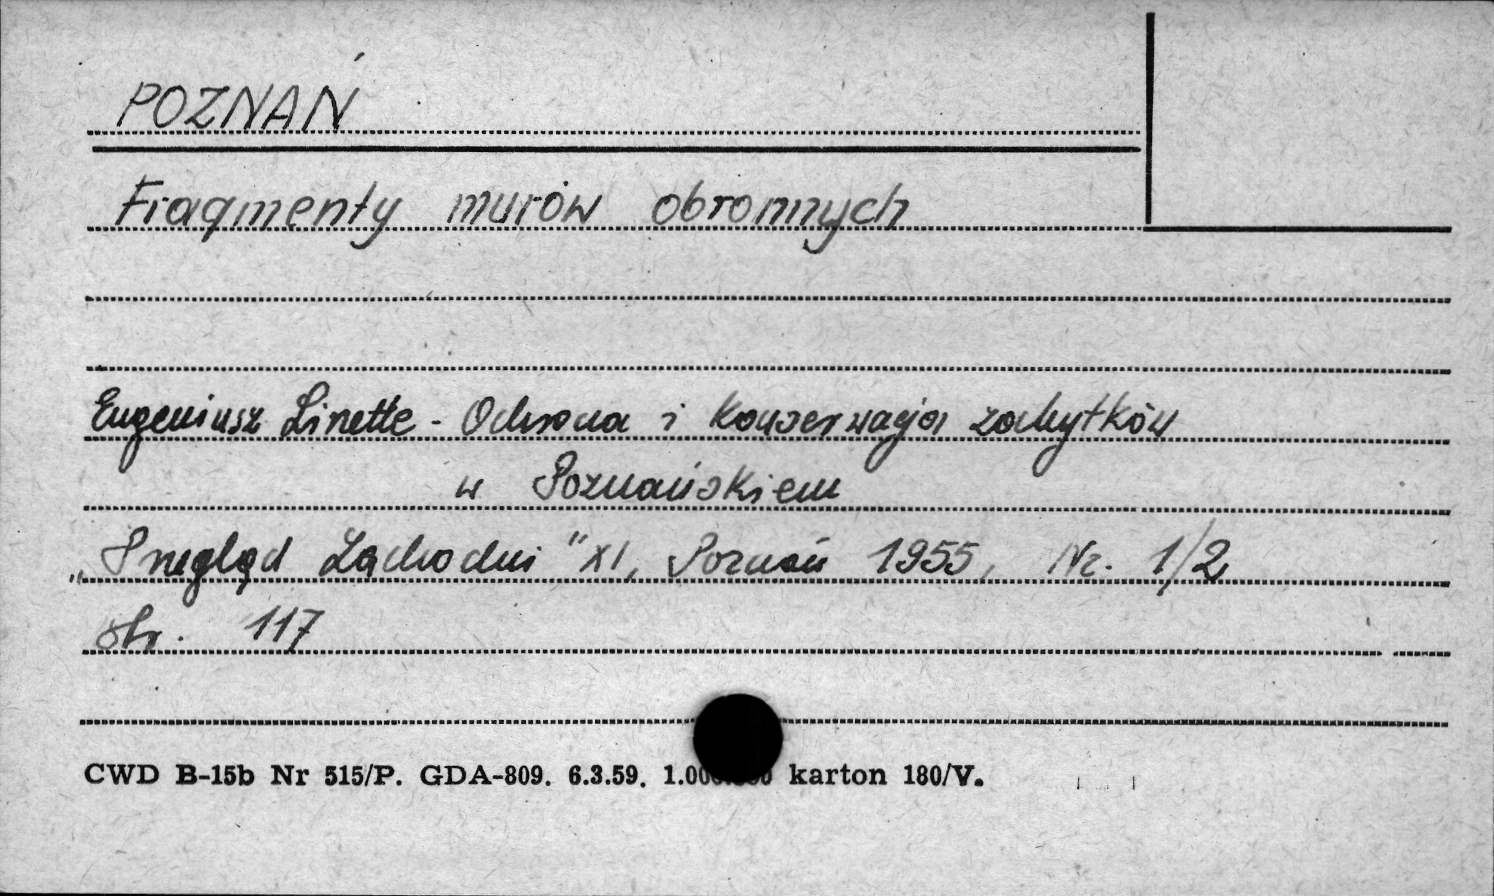 POZNAŃ
Fragmenty murów obronnych
Eugeniusz Linette - Ochrona i konserwacja zabytków
w Poznańskiem
„Przegląd Zachodni" XI, Poznań 1955, Nr. 1/2
str. 117
CWD B-15b Nr 515/P. GDA-809. 6.3.59. karton 180/V.